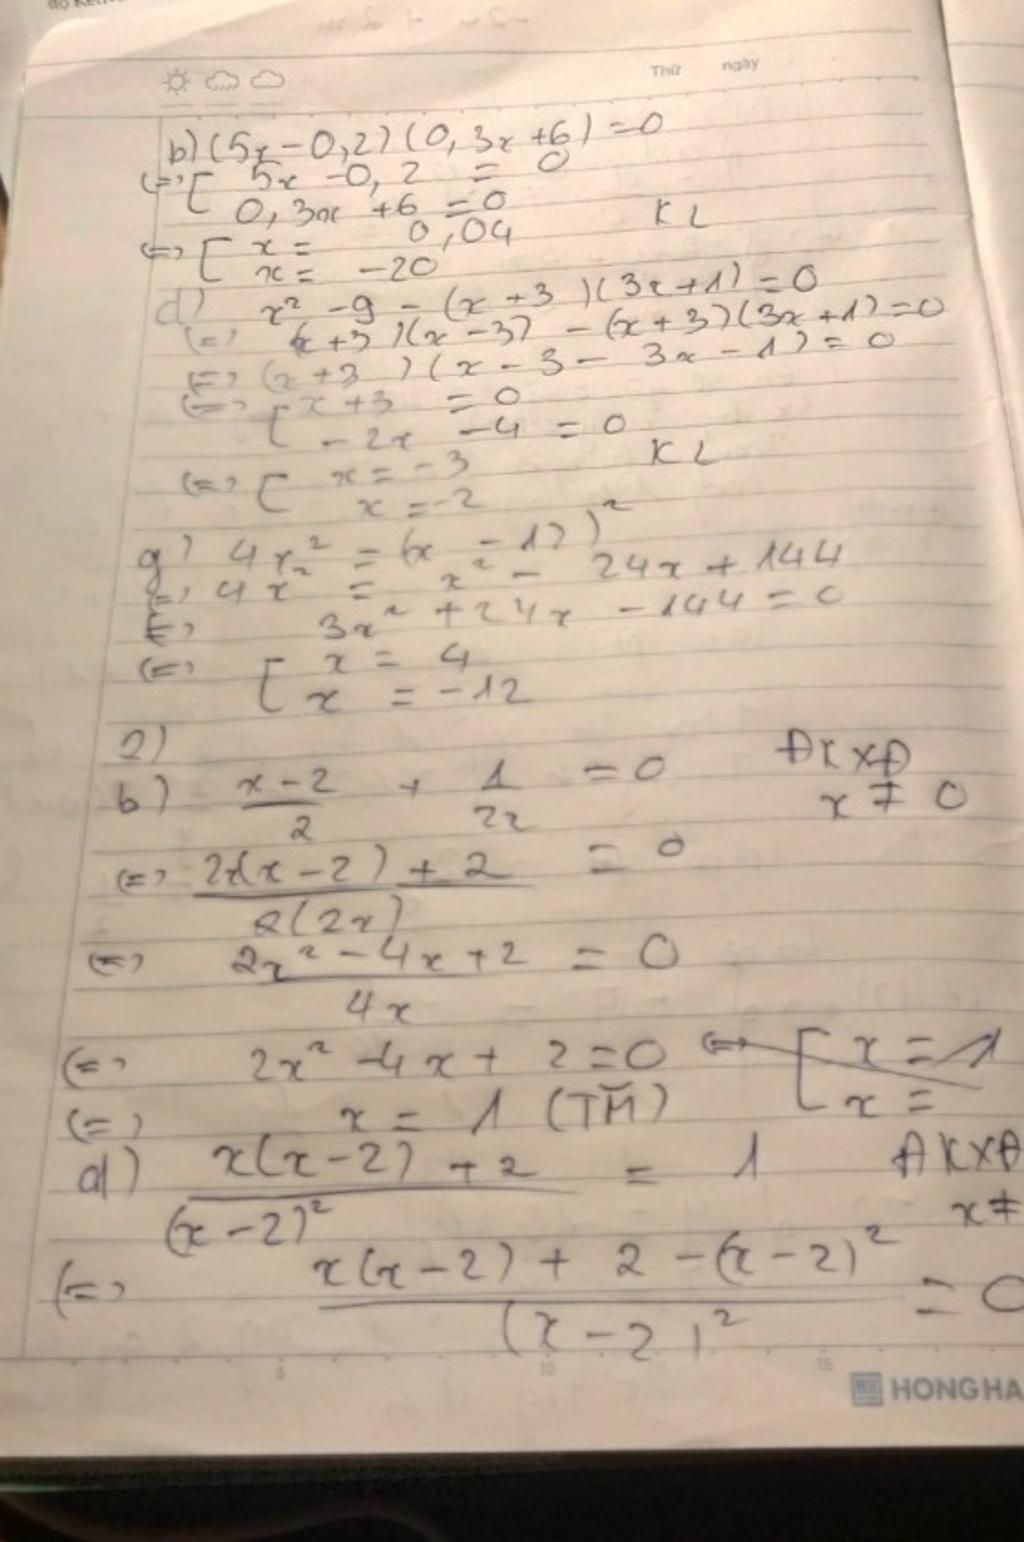 Thứ ngày
b) (5x - 0,2) (0,3x + 6) = 0
<=> [ 5x - 0,2 = 0
0,3x + 6 = 0
KL
<=> [ x = 0,04
x = -20
d) x² - 9 - (x + 3)(3x + 1) = 0
(=) (x + 3)(x - 3) - (x + 3)(3x + 1) = 0
<=> (x + 3)(x - 3 - 3x - 1) = 0
<=> [ x + 3 = 0
- 2x - 4 = 0
KL
<=> [ x = -3
x = -2
g) 4x² = (x - 12)²
<=> 4x² = x² - 24x + 144
<=> 3x² + 24x - 144 = 0
<=> [ x = 4
x = -12
2)
b) (x - 2)/2 + 1/2x = 0 ĐKXĐ
x ≠ 0
<=> (2x(x - 2) + 2)/(2(2x)) = 0
<=> (2x² - 4x + 2)/(4x) = 0
<=> 2x² - 4x + 2 = 0 <=> [ x = 1
x =
<=> x = 1 (TM)
d) (x(x - 2) + 2)/(x - 2)² = 1 ĐKXĐ
x ≠
<=> (x(x - 2) + 2 - (x - 2)²)/(x - 2)² = 0
5 10 15
HONG HA